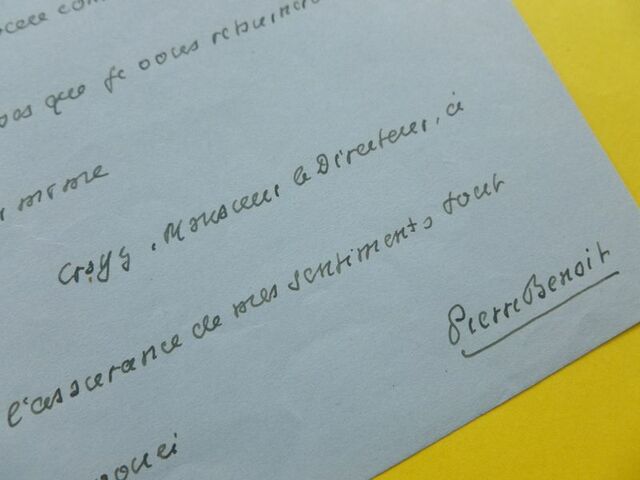 que je vous
même
Croyez, Monsieur le Directeur, à
l'assurance de mes sentiments tout
Pierre Benoit